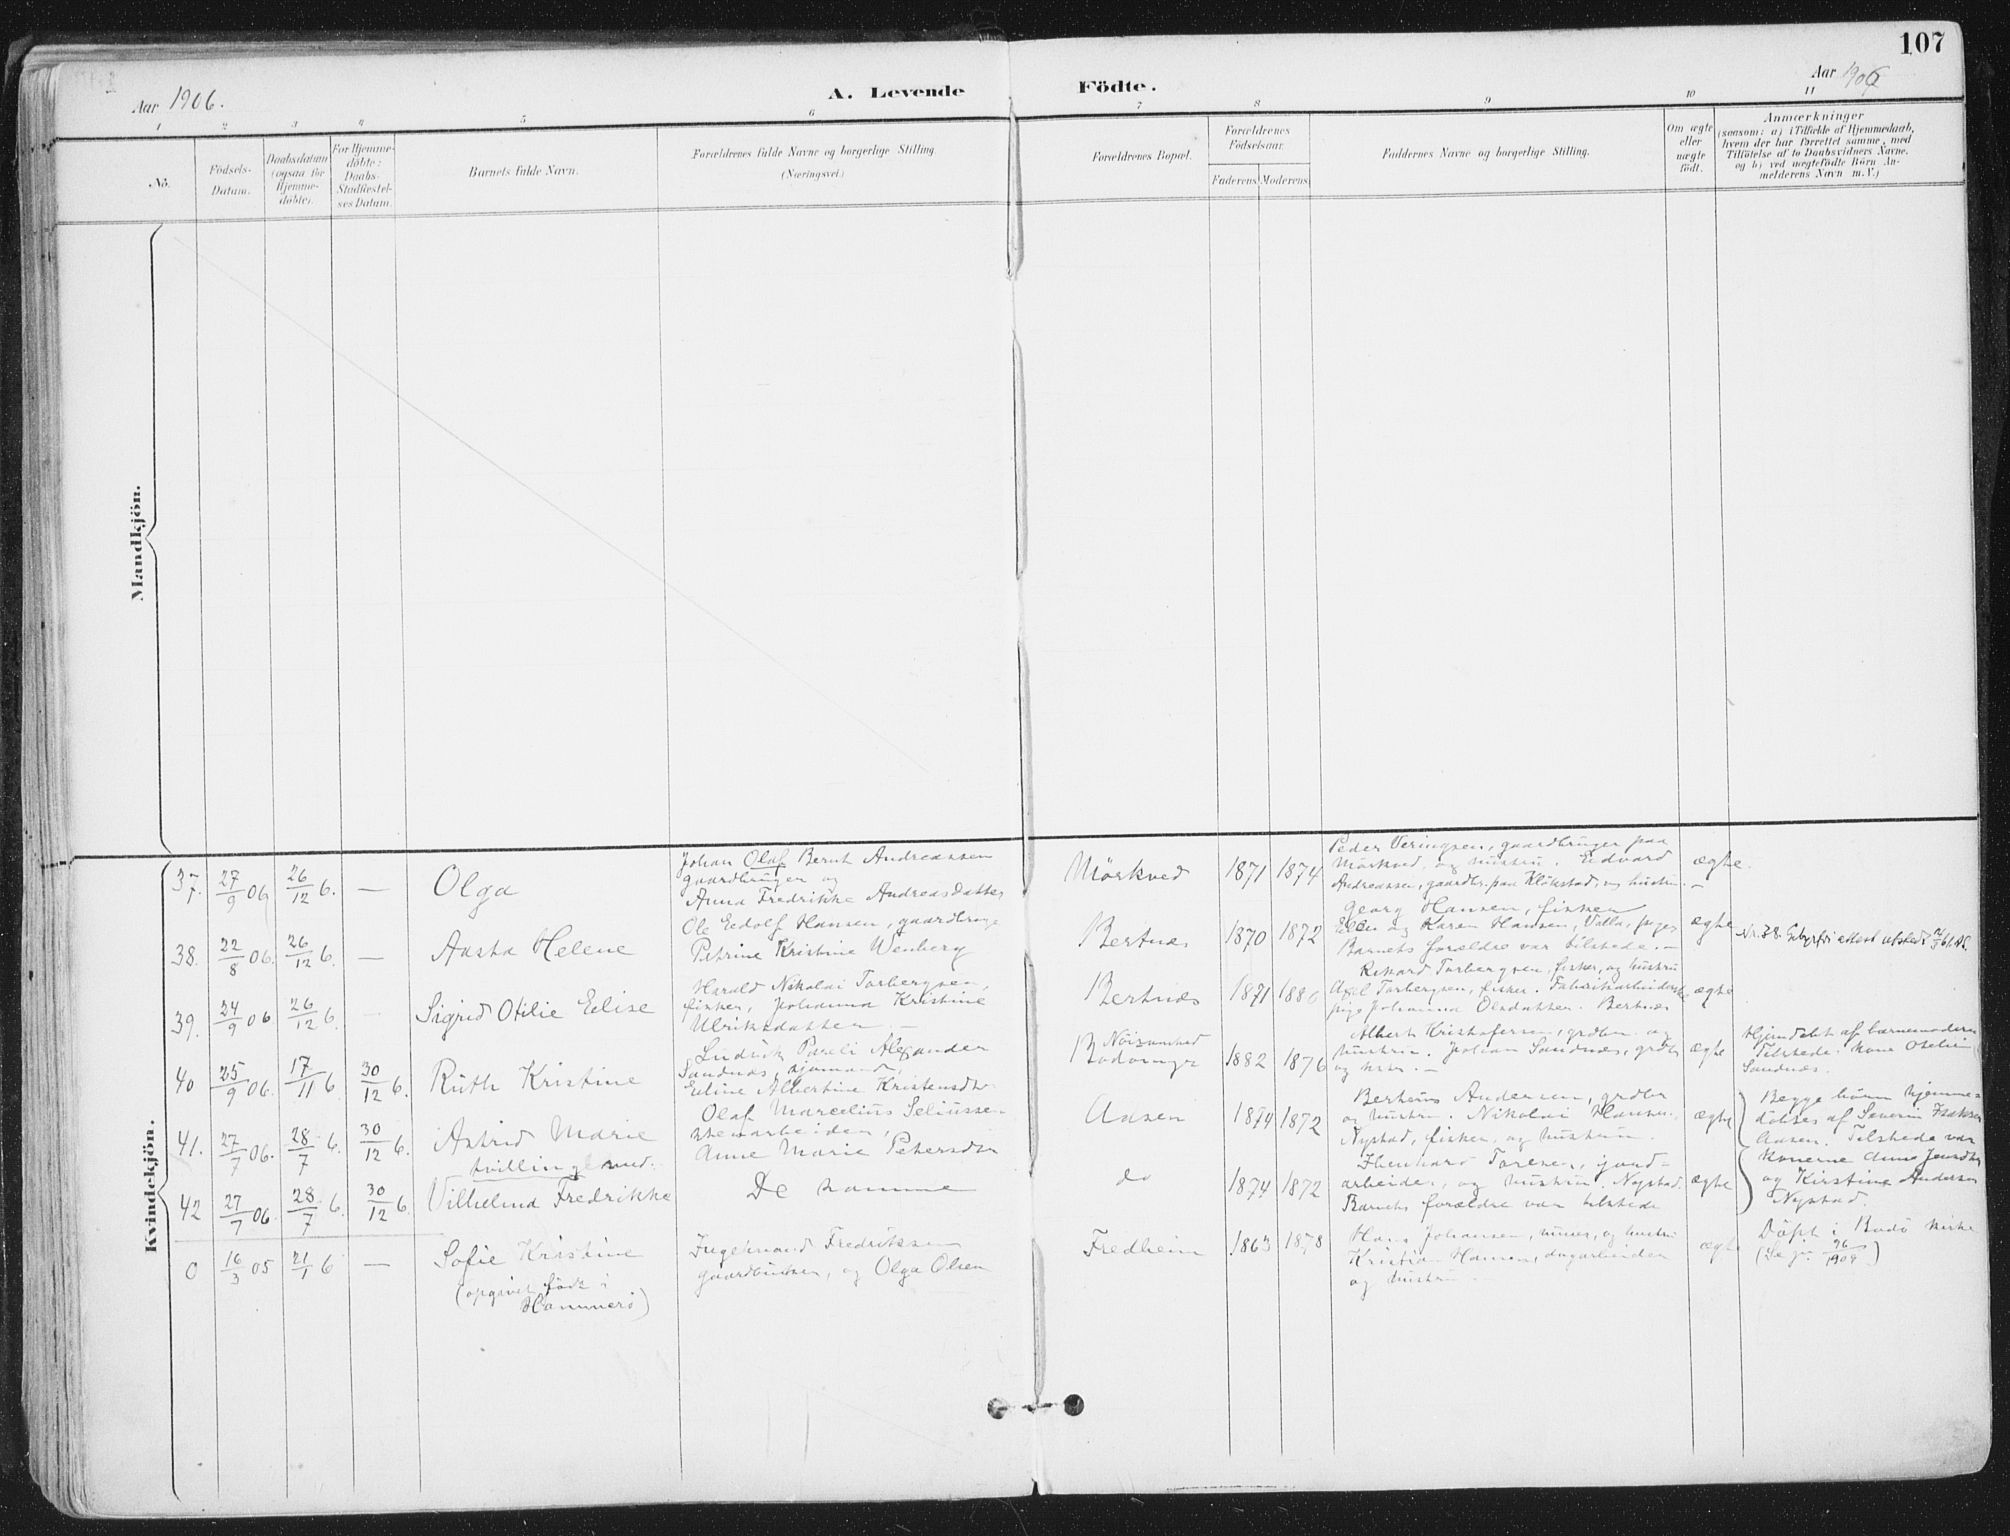 107
Aar 1906.
A. Levende Födte.
Aar 1906
1 2 3 4 5 6 7 8 9 10 11
No.
Födsels-
Datum.
Daabsdatum
(ogsaa for
Hjemme-
döbte).
For Hjemme-
döbte:
Daabs-
Stadfæstel-
ses Datum.
Barnets fulde Navn.
Forældrenes fulde Navne og borgerlige Stilling.
(Næringsvei.)
Forældrenes Bopæl.
Forældrenes
Födselsaar.
Faderens Moderens
Faddernes Navne og borgerlige Stilling.
Om ægte
eller
uægte
födt.
Anmærkninger
(saasom: a) i Tilfælde af Hjemmedaab,
hvem der har forrettet samme, med
Tilföielse af to Daabsvidners Navne,
og b) ved uægtefödte Börn An-
melderens Navn m. V.)
Mandkjön.
Kvindekjön.
37. 27/9 06 26/12 6. — Olga
Johan Olaf Bernt Andreassen
gaardbruger og
Anna Fredrikke Andreasdatter
Mørkved 1871 1874
Peder Veringsen, gaardbruger paa
Mørkved, og hustru. Edvard
Andreassen, gaardbr. paa Kløkstad, og hustru.
ægte.
38. 22/8 06. 26/12 6. — Aasta Helene
Ole Edolf Hansen, gaardbruger
Petrine Kristine Wenberg
Bertnes 1870 1872
Georg Hansen, fisker
Ellen og Karen Hansen, Valle, piger
Barnets forældre var tilstede. —
ægte
Nr. 38.
39. 24/9 06 26/12 6. — Sigrid Otilie Edise
Harald Nikolai Torbergsen,
fisker, Johanna Kristine
Ulriksdatter. —
Bertnes 1871 1880
Rikard Torbergsen, fisker, og hustru
Axel Torbergsen, fisker. Fabrikarbeiderske
pige Johanna Olsdatter. Bertnes
ægte
40 25/9 06. 17/11 6 30/12 6. Ruth Kristine
Ludvik Pareli Alexander
Sandnes, sjømand,
Eline Albertine Kristensdtr
Nøisomhed
Bodøringen 1882 1876
Albert Kristofersen, grdbr. og
hustru. Johan Sandnes, grdbr
og hstr. —
ægte
Hjemdøbt af barnemoderen
Tilstede: kone Otelie
Sandnes.
41. 27/7 06. 28/7 6. 30/12 6. Astrid Marie
tvillinglmd:
Olaf Marcelius Seliussen
stenarbeider,
Anne Marie Petersdtr
Aasen 1874 1872
Berteus Andersen, grdbr
og hustru. Nikolai Hansen,
Nystad, fisker, og hustru.
ægte
Begge børn hjemme-
døbtes af Severin Isaksen
Aasen. Tilstede var
konerne Anna Jensdtr
og Kirstine Andersen
Nystad.
42 27/7 06. 28/7 6. 30/12 6. Vilhelmd Fredrikke
De samme
do 1874 1872
Toresen, jord-
arbeider, og hustru. Nystad.
Barnets forældre var tilstede
ægte
0 16/3 05 21/1 6 — Sofie Kristine
(opgivet født i
Hammerø)
Ingebrand Fredriksen
gaardbruger, og Olga Olsen
Fredheim 1863 1878
Hans Johansen, murer, og hustru
Kristian Hansen, dagarbeider
og hustru
ægte
Døpt i Bodø kirke
(Se jr. 96/1909)